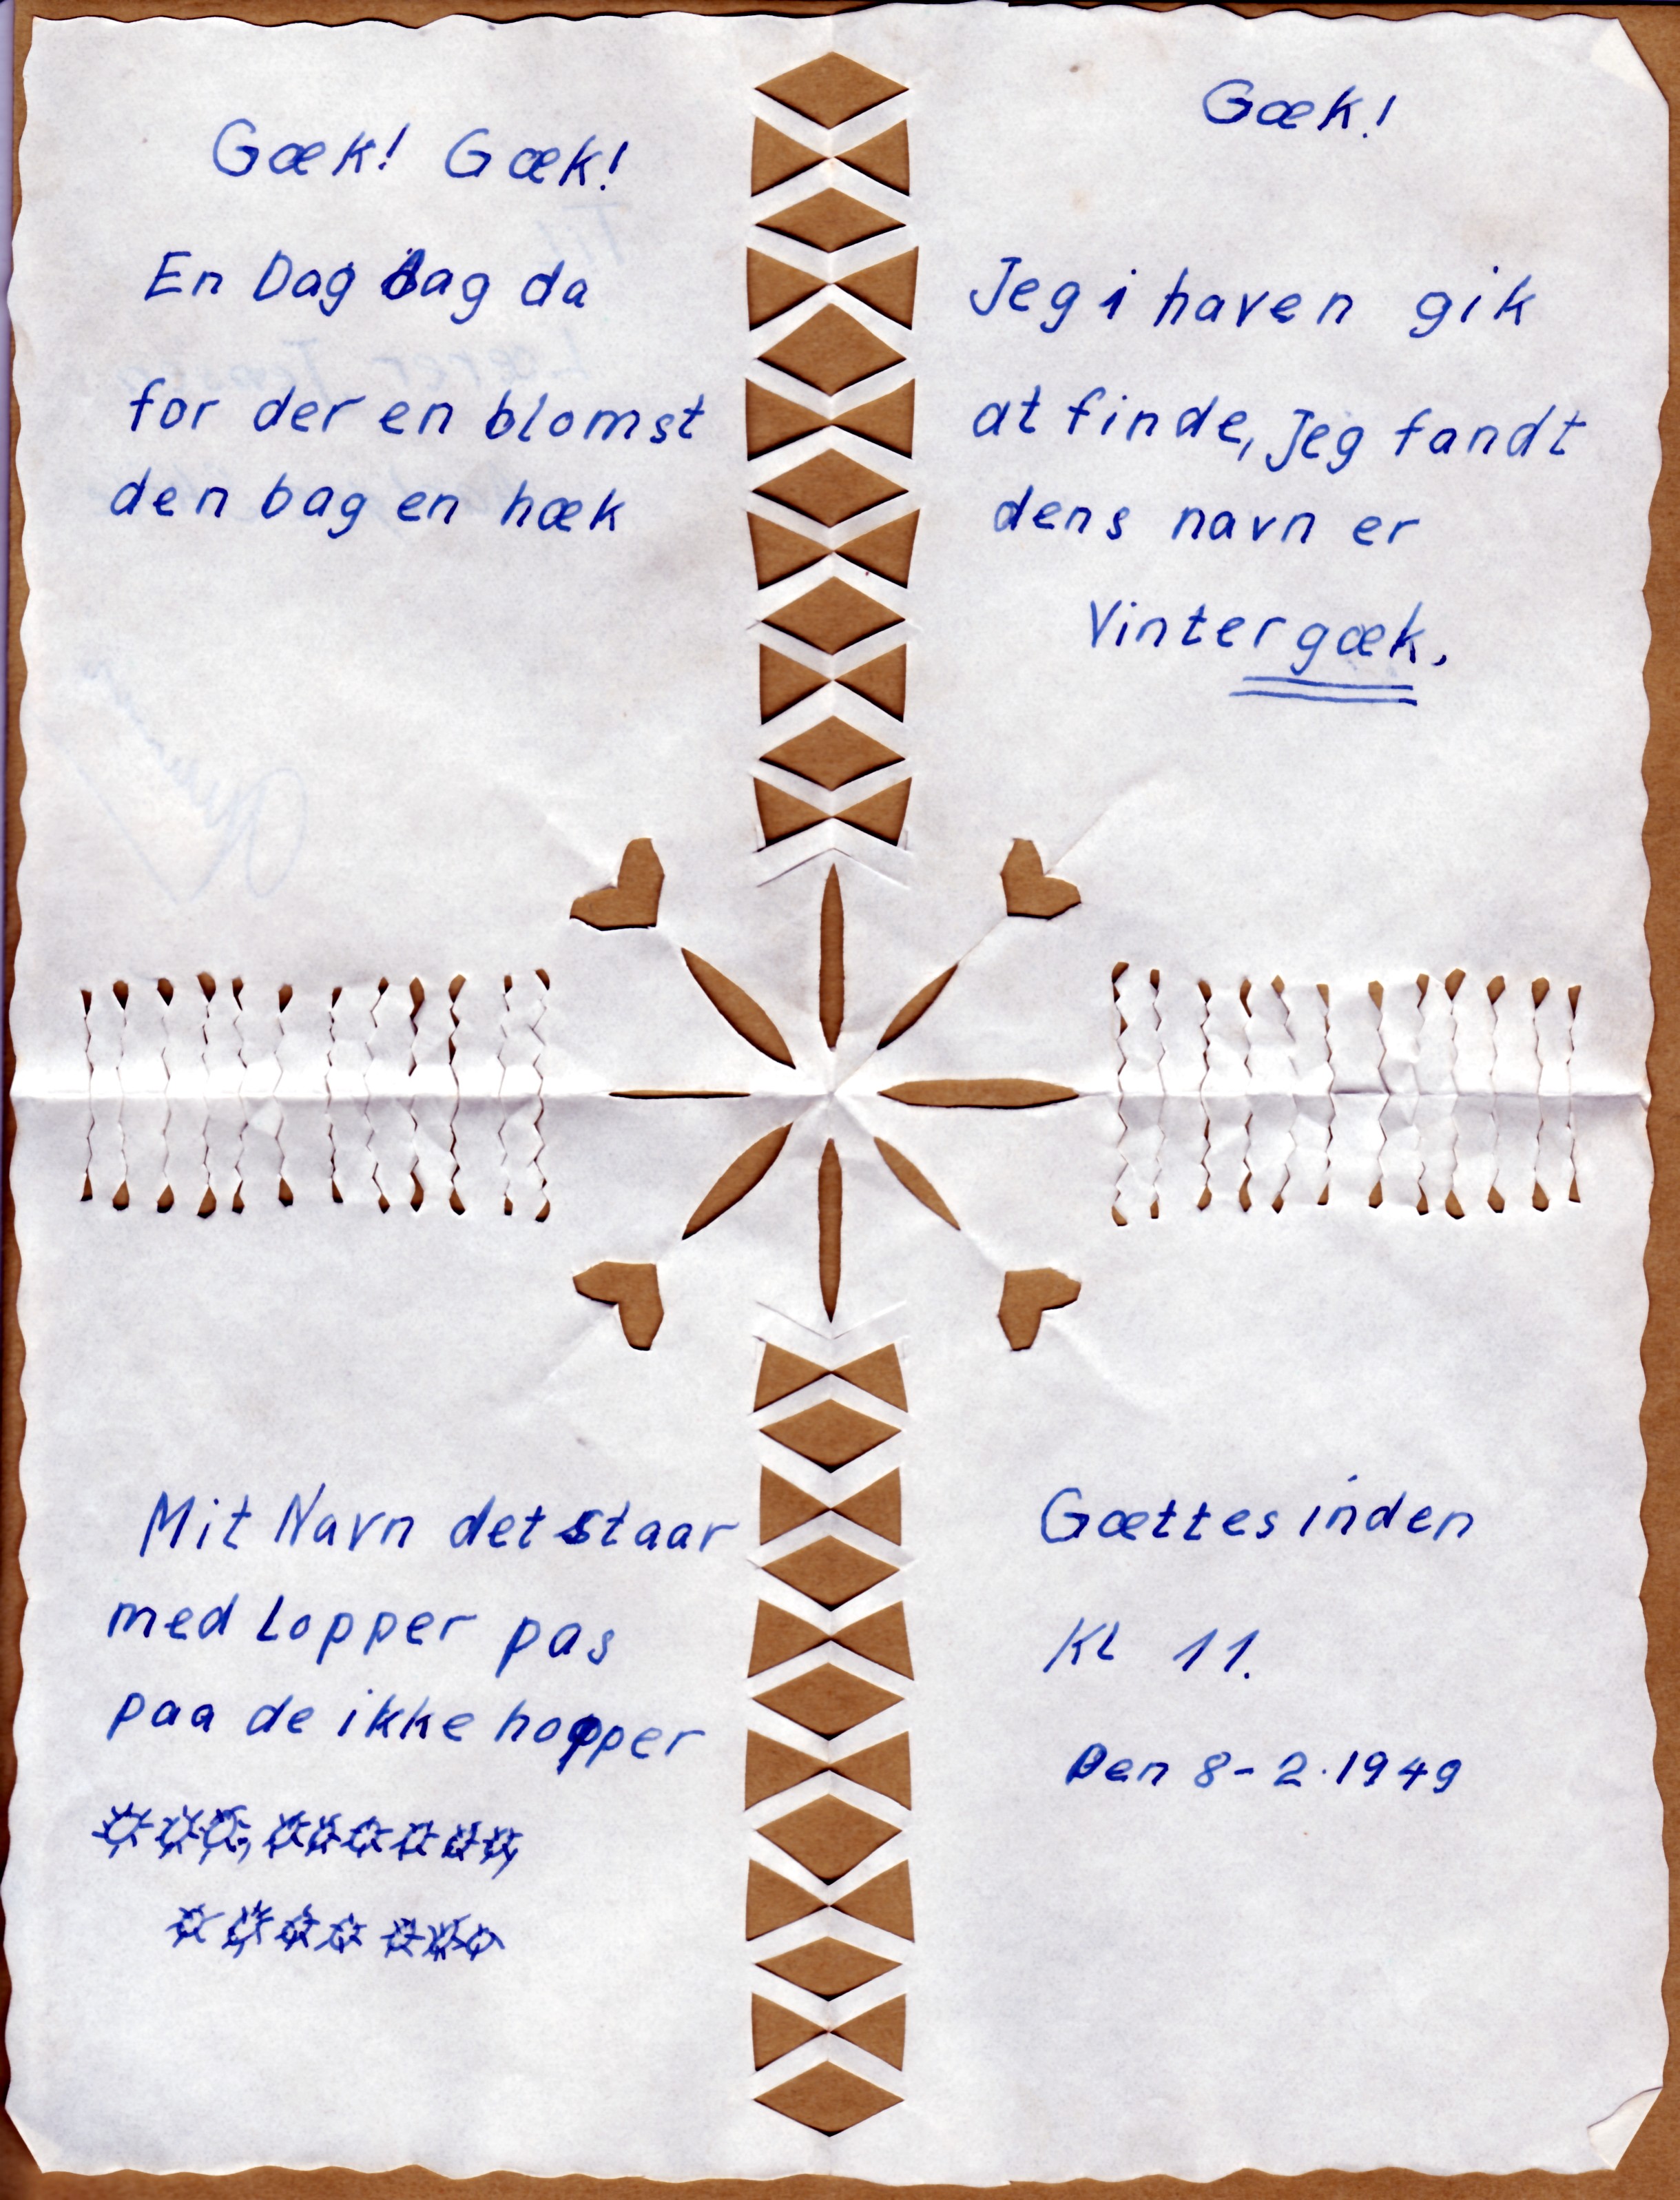 Gæk! Gæk!
En Dag dag da
for der en blomst
den bag en hæk
Gæk!
Jeg i haven gik
at finde, Jeg fandt
dens navn er
Vintergæk.
Mit Navn det staar
med Lopper pas
paa de ikke hopper
Gættes inden
Kl 11.
Den 8-2.1949